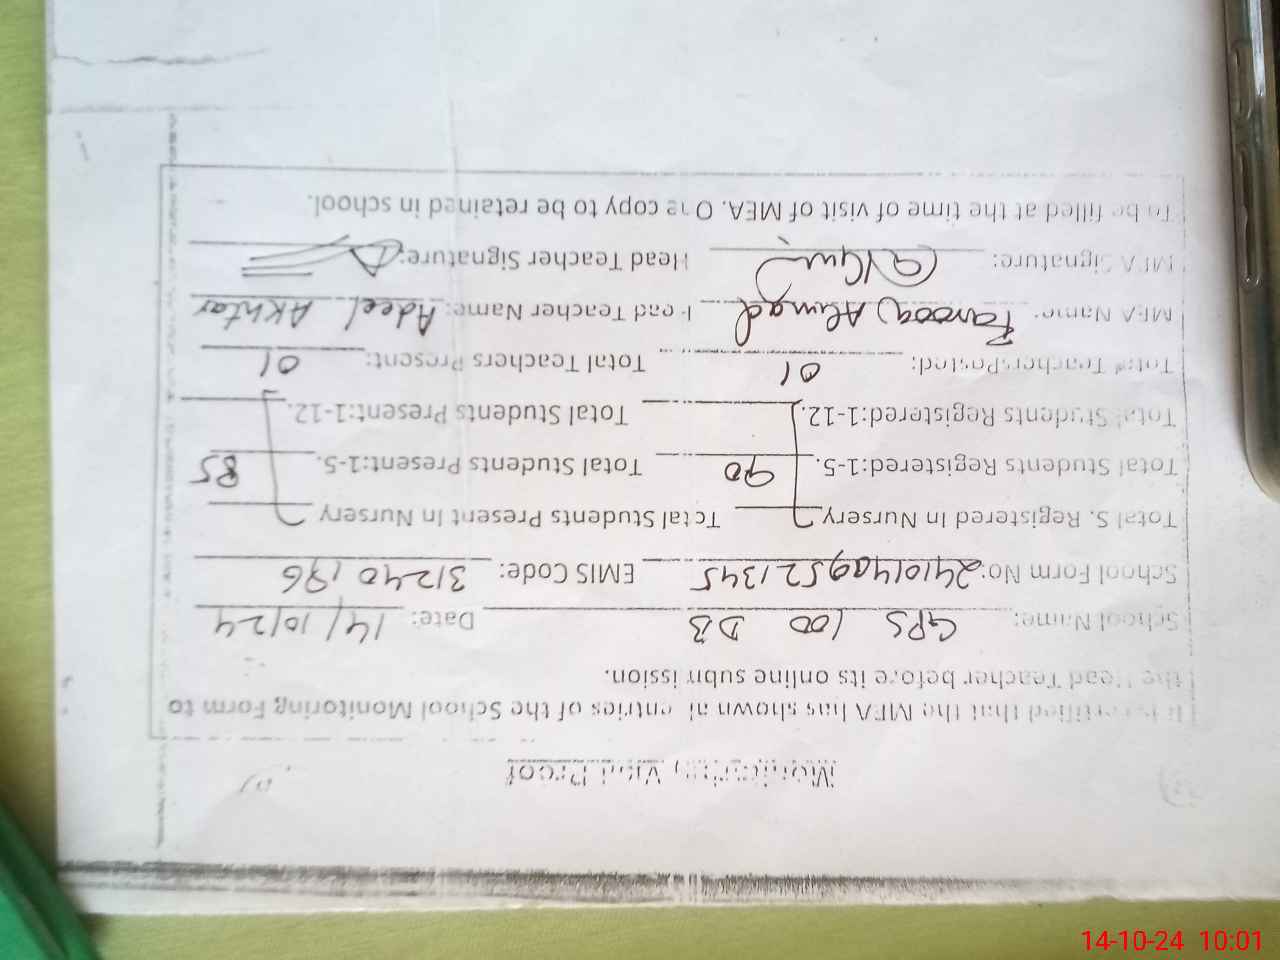 Monitoring Visit Proof
It is certified that the MEA has shown all entries of the School Monitoring Form to
the Head Teacher before its online submission.
School Name: GPS 100 DB Date: 14/10/24
School Form No: 24101409521345 EMIS Code: 31240196
Total S. Registered In Nursery Total Students Present In Nursery
Total Students Registered:1-5. 90 Total Students Present:1-5. 85
Total Students Registered:1-12. Total Students Present:1-12.
Total Teachers Posted: 01 Total Teachers Present: 01
MEA Name: Farooq Ahmad Head Teacher Name: Adeel Akhtar
MEA Signature: Head Teacher Signature:
To be filled at the time of visit of MEA. One copy to be retained in school.
14-10-24 10:01